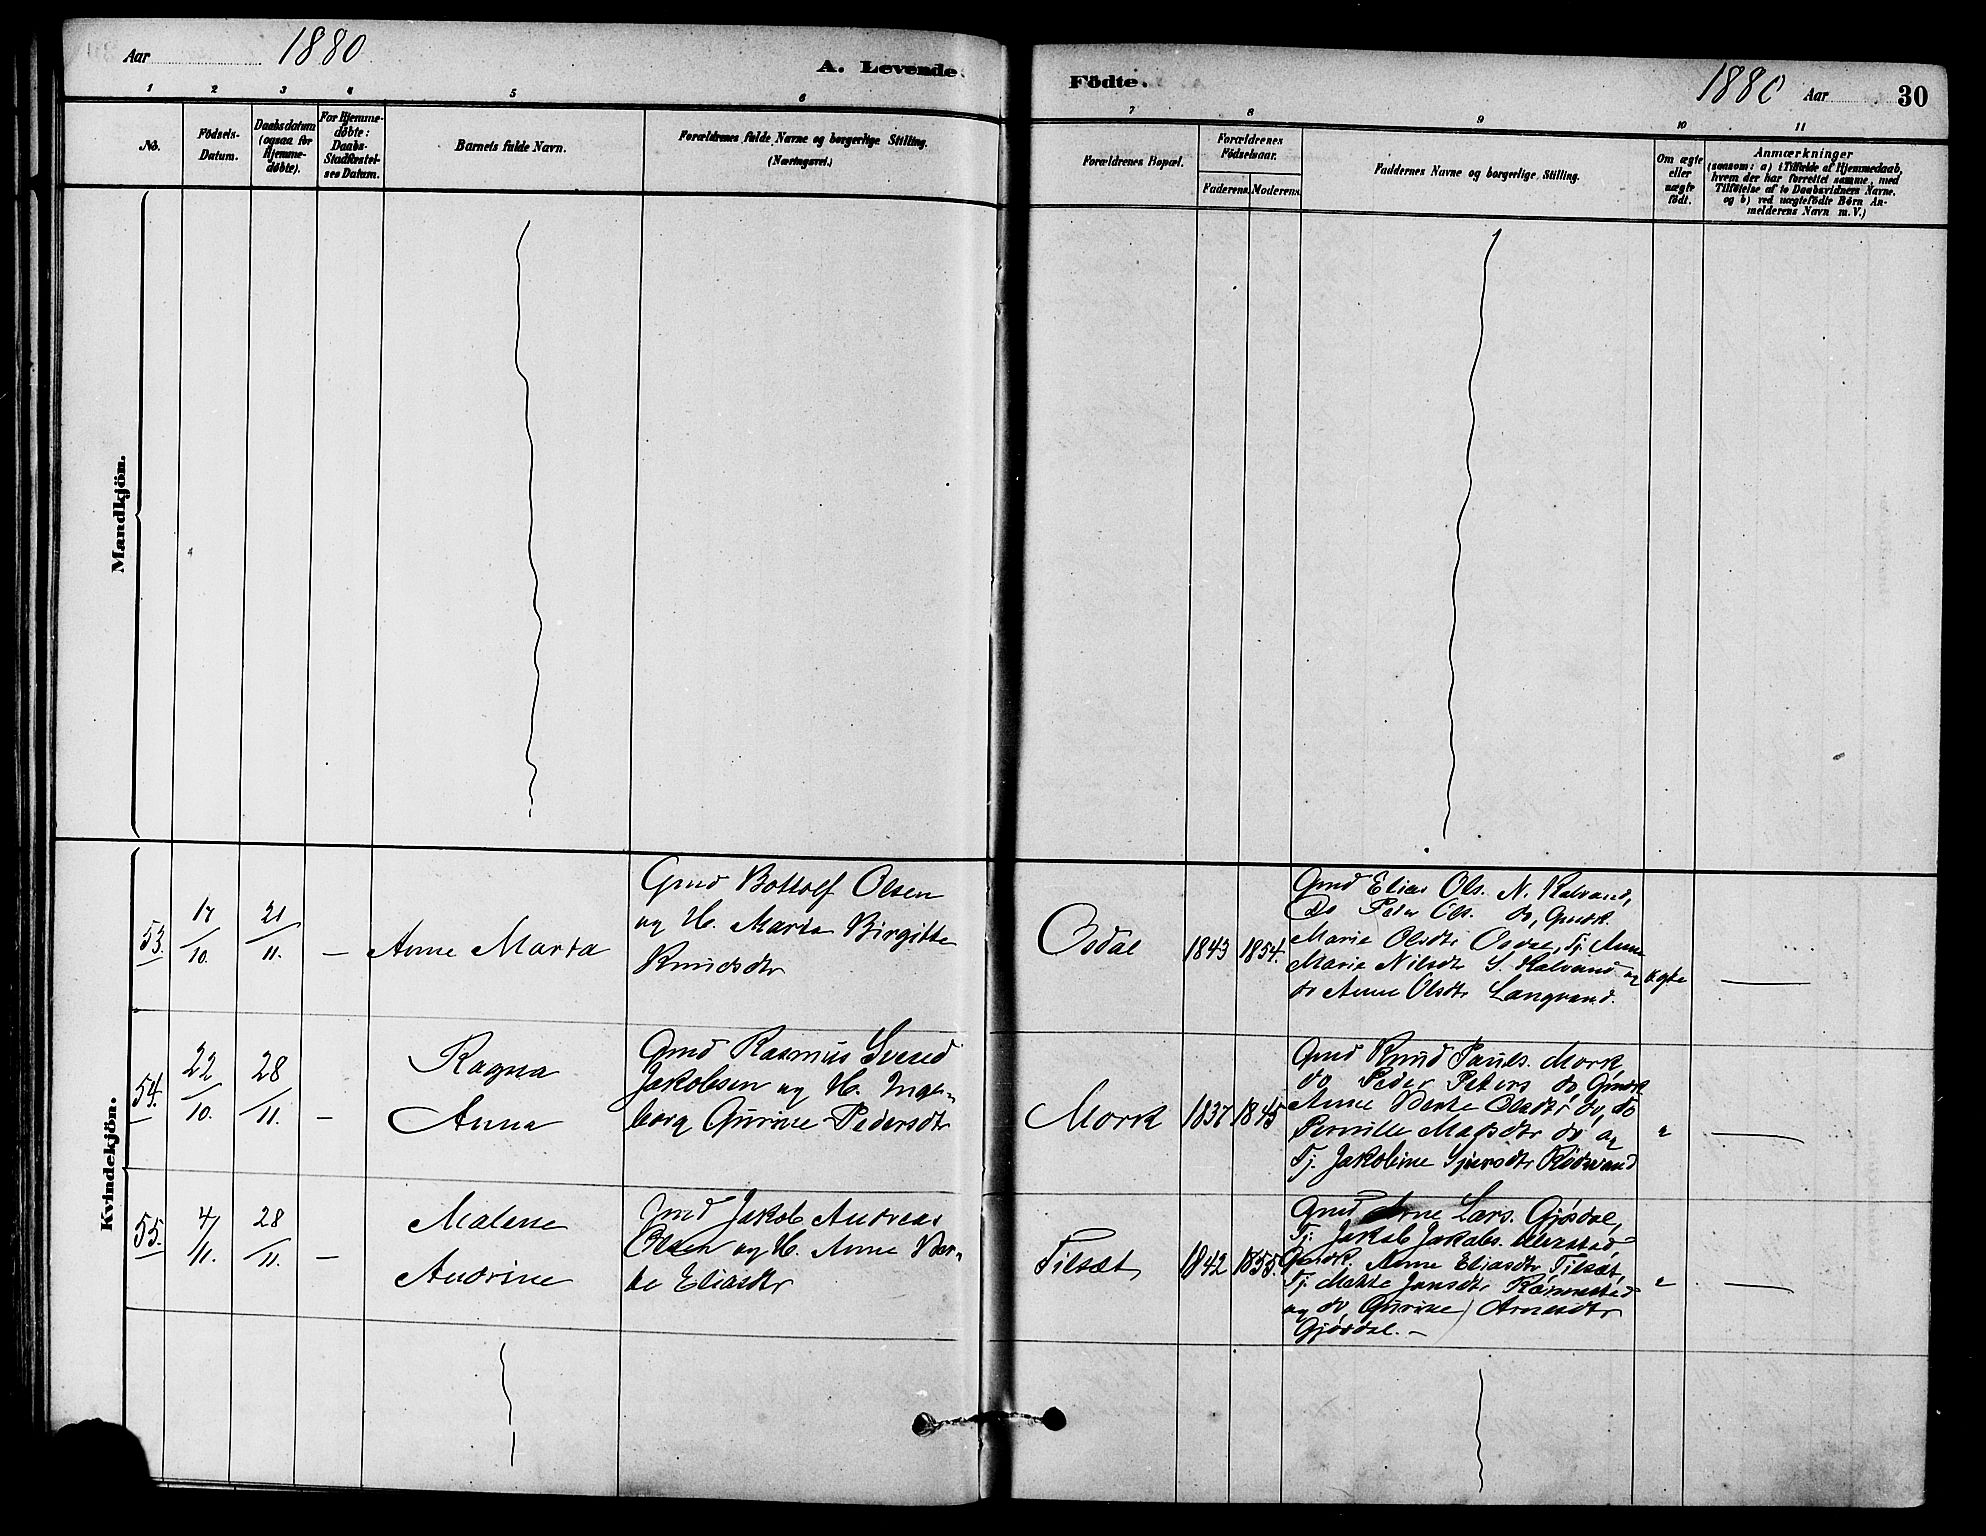 Aar 1880
A. Levende
Födte.
1880 Aar 30
1 2 3 4 5 6 7 8 9 10 11
No.
Födsels-
Datum.
Daabsdatum
(ogsaa for
Hjemme-
døbte).
For Hjemme-
døbte:
Daabs-
Stadfæstel-
ses Datum.
Barnets fulde Navn.
Forældrenes fulde Navne og borgerlige Stilling.
(Næringsvei.)
Forældrenes Bopæl.
Forældrenes
Födselsaar.
Faderens. Moderens.
Faddernes Navne og borgerlige Stilling.
Om ægte
eller
uægte
födt.
Anmærkninger
(saasom: a) i Tilfælde af Hjemmedaab,
hvem der har forrettet samme, med
Tilföielse af to Daabsvidners Navne.
og b) ved uægtefödte Børn An-
melderens Navn m. V.)
Mandkjön.
Kvindekjön.
53. 17/10. 21/11. —
Anne Marta
Gmd Bottolf Olsen
og H. Marta Birgitte
Knudsdtr
Osdal 1843 1854.
Gmd Elias Ols. N. Kalvand,
Do Peder Ols. do, Gmdk
Marie Olsdtr Osdal, Tj. Anne
Marie Nilsdtr S. Kalvand og
do Anne Olsdtr Langvand.
ægte —
54. 22/10. 28/11. —
Ragna
Anna
Gmd Rasmus Sivert
Jakobsen og H. Inge-
borg Gurine Pedersdtr
Mork 1837 1845
Gmd Knud Pauls. Mork,
do Peder Peters do, Gmdk
Anne Berte Olsdtr do, do
Pernille Madsdtr do og
Tj. Jakobine Sjursdtr Rödvand
" —
55. 4/11. 28/11. —
Malene
Andrine
Gmd Jakob Andreas
Olsen og H. Anne Ber-
te Eliasdtr
Tilsæt 1842 1855.
Gmd Arne Lars. Gjøsdal,
Tj. Jakob Jakobs.
Gmdk. Anne Eliasdtr Tilsæt,
Tj. Makte Jansdtr
og do, Gurine Arnesdtr
Gjøsdal. —
" —